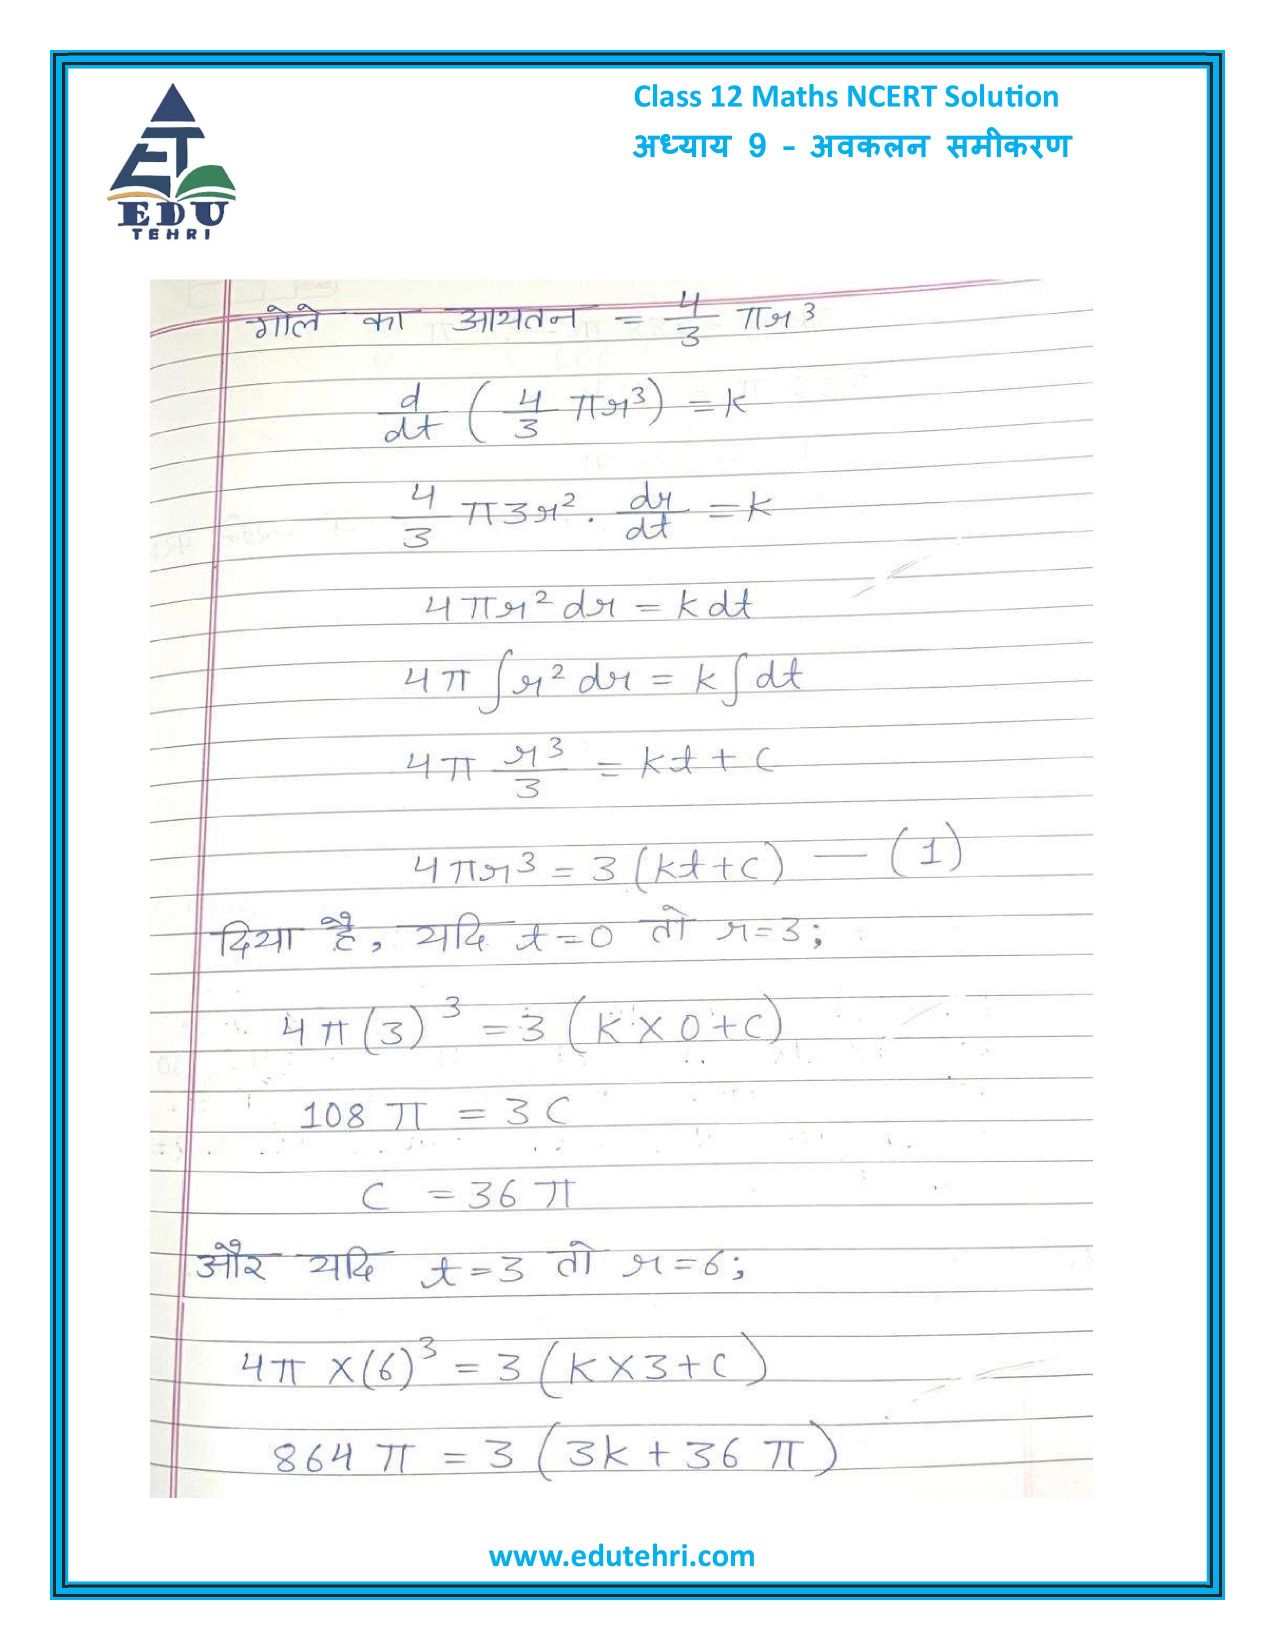 Class 12 Maths NCERT Solution
अध्याय 9 - अवकलन समीकरण
EDU
TEHRI
गोले का आयतन = 4/3 πr³
d/dt (4/3 πr³) = k
4/3 π3r² . dr/dt = k
4πr² dr = k dt
4π ∫r² dr = k∫dt
4π r³/3 = kt + c
4πr³ = 3 (kt+c) — (1)
दिया है, यदि t=0 तो r=3;
4π(3)³ = 3 (k×0+c)
108 π = 3 c
c = 36 π
और यदि t=3 तो r=6;
4π ×(6)³ = 3 (k×3+c)
864 π = 3 (3k + 36 π)
www.edutehri.com